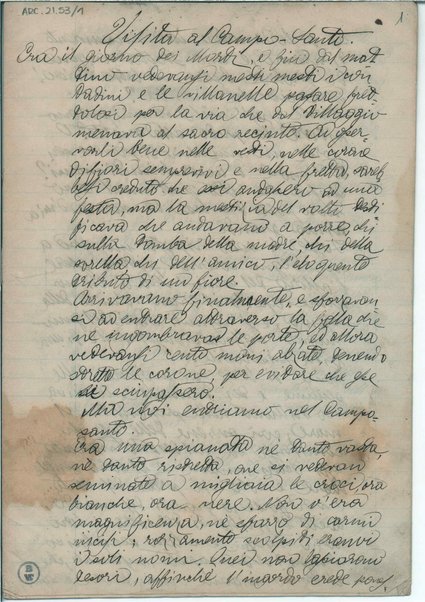 ARC. 21.53/1
1
Visita al Campo-Santo.
Era il giorno dei Morti, e fin dal mat
tino vedevansi mesti mesti i con
tadini e le villanelle passare fret
tolosi per la via che dal villaggio
menava al sacro recinto. Ad osser-
varli bene nelle vesti, nelle corone
di fiori sempervivi e nella fretta, sareb
besi creduto che essi andassero ad una
festa, ma la mestizia del volto
ficava che andavano a porre, chi
sulla tomba della madre, chi della
sorella chi dell'amico, l'eloquente
tributo di un fiore.
Arrivavano finalmente, e sforzavan
si ad entrare attraverso la folla che
ne ingombrava le porte, ed allora
vedevansi cento mani alzate tenendo
strette le corone, per evitare che
si sciupassero.
Ma noi entriamo nel Campo-
santo.
Era una spianata nè tanto vasta,
nè tanto ristretta, ove si vedevan
seminate a migliaia le croci, ora
bianche, ora nere. Non v'era
magnificenza, nè sfarzo di carmi
incisi; raramente scolpiti eranvi
i soli nomi. Quei non lasciarono
tesori, affinchè l'ingordo erede